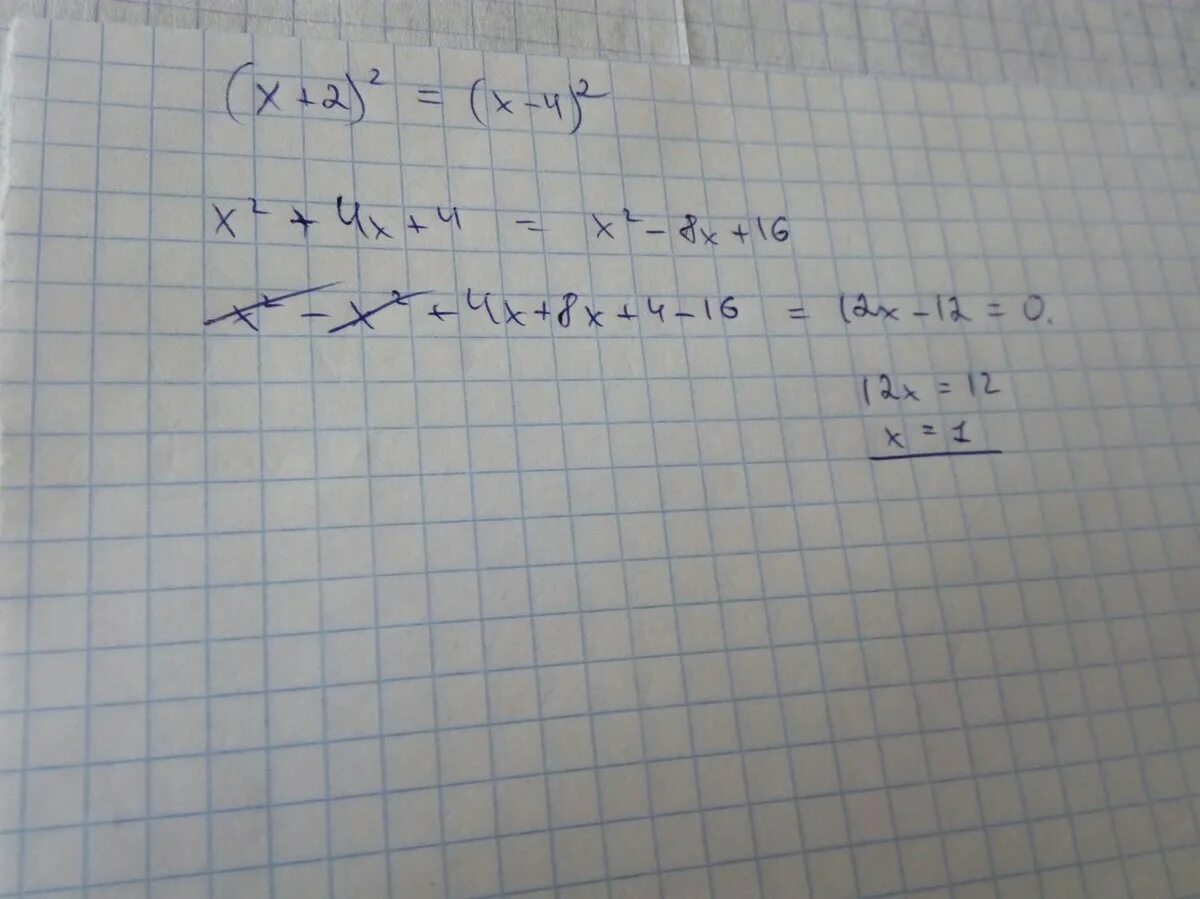 (x+2)² = (x-4)²
x² + 4x + 4 = x² - 8x + 16
x² - x² + 4x + 8x + 4 - 16 = 12x - 12 = 0.
12x = 12
x = 1